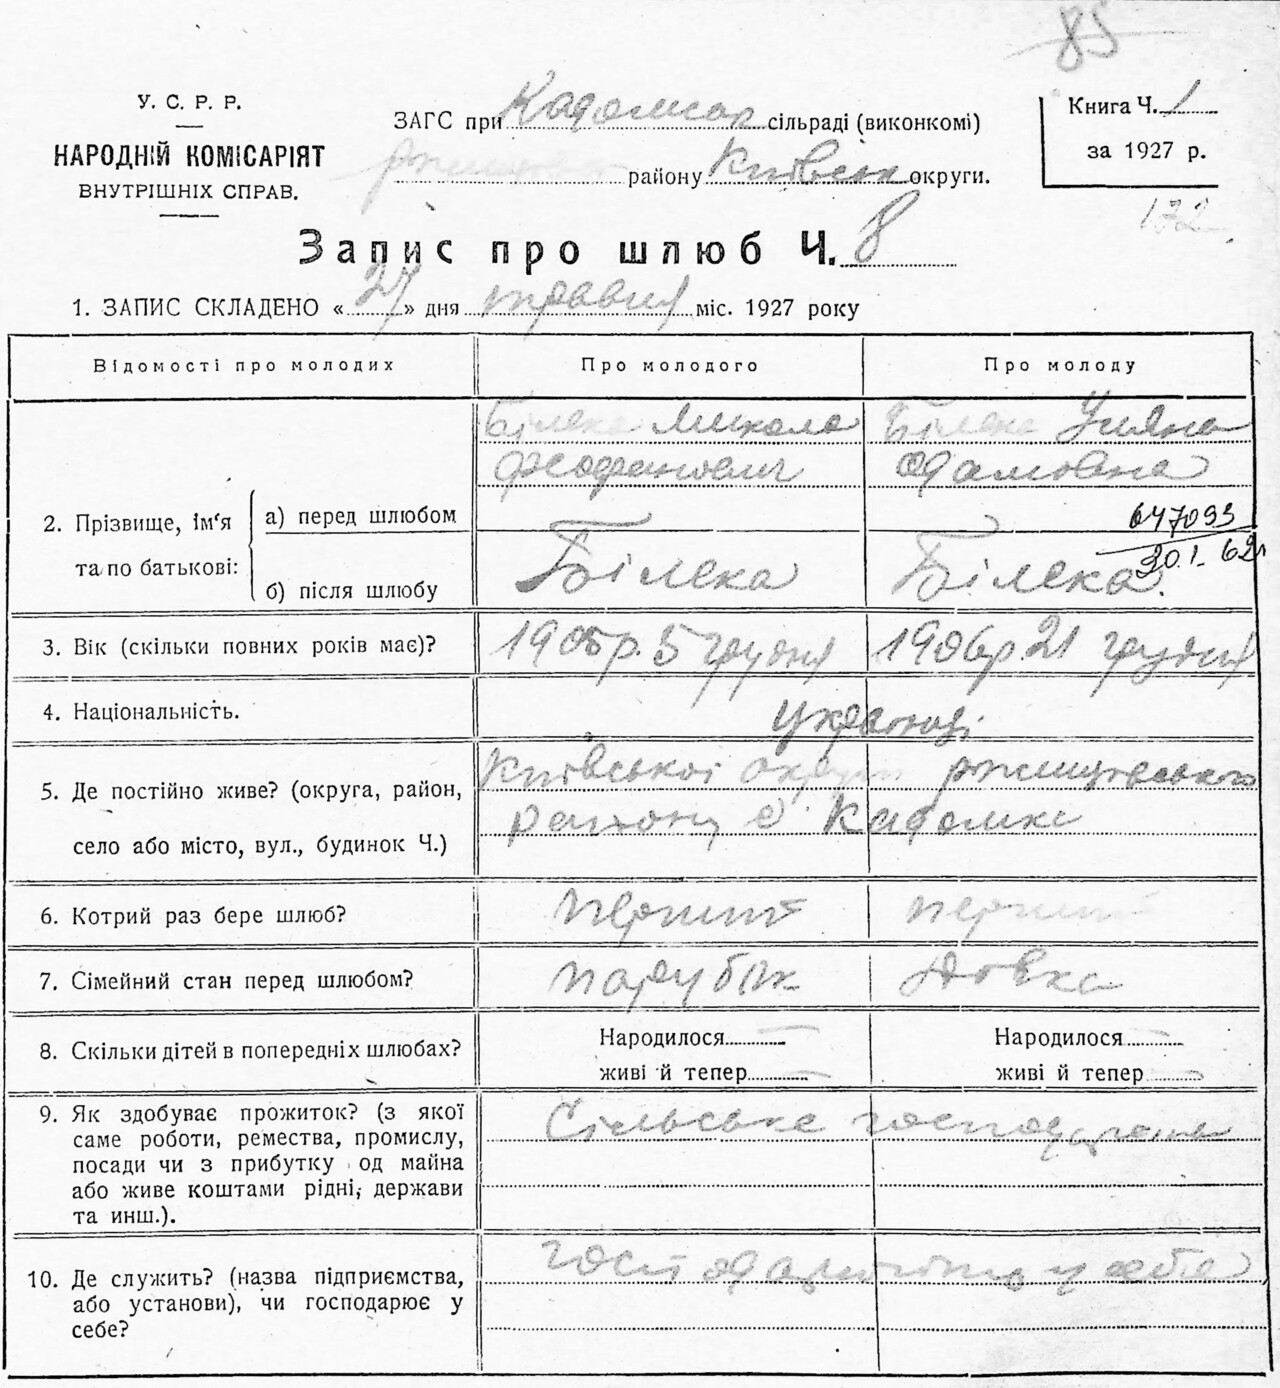 85
У. С. Р. Р.
НАРОДНІЙ КОМІСАРІЯТ
ВНУТРІШНІХ СПРАВ.
ЗАГС при Кадомськ сільраді (виконкомі)
району Київськ округи.
Книга Ч. 1
за 1927 р.
172
Запис про шлюб Ч. 8
1. ЗАПИС СКЛАДЕНО «27» дня травня міс. 1927 року
Відомості про молодих Про молодого Про молоду
2. Прізвище, ім'я та по батькові:
а) перед шлюбом
Білека Микола
Білека Уляна
Адамовна
647093
30.I. 62
б) після шлюбу
Білека Білека.
3. Вік (скільки повних років має)? 1905р. 5 грудня 1906р. 21 грудня
4. Національність. Українці
5. Де постійно живе? (округа, район,
село або місто, вул., будинок Ч.)
Київської округи ржищівського
району с. Кадомка
6. Котрий раз бере шлюб? перший перший
7. Сімейний стан перед шлюбом? парубок дівка
8. Скільки дітей в попередніх шлюбах? Народилося — Народилося —
живі й тепер — живі й тепер —
9. Як здобуває прожиток? (з якої
саме роботи, ремества, промислу,
посади чи з прибутку од майна
або живе коштами рідні, держави
та инш.).
Сільське господарство
10. Де служить? (назва підприємства,
або установи), чи господарює у
себе?
у себе